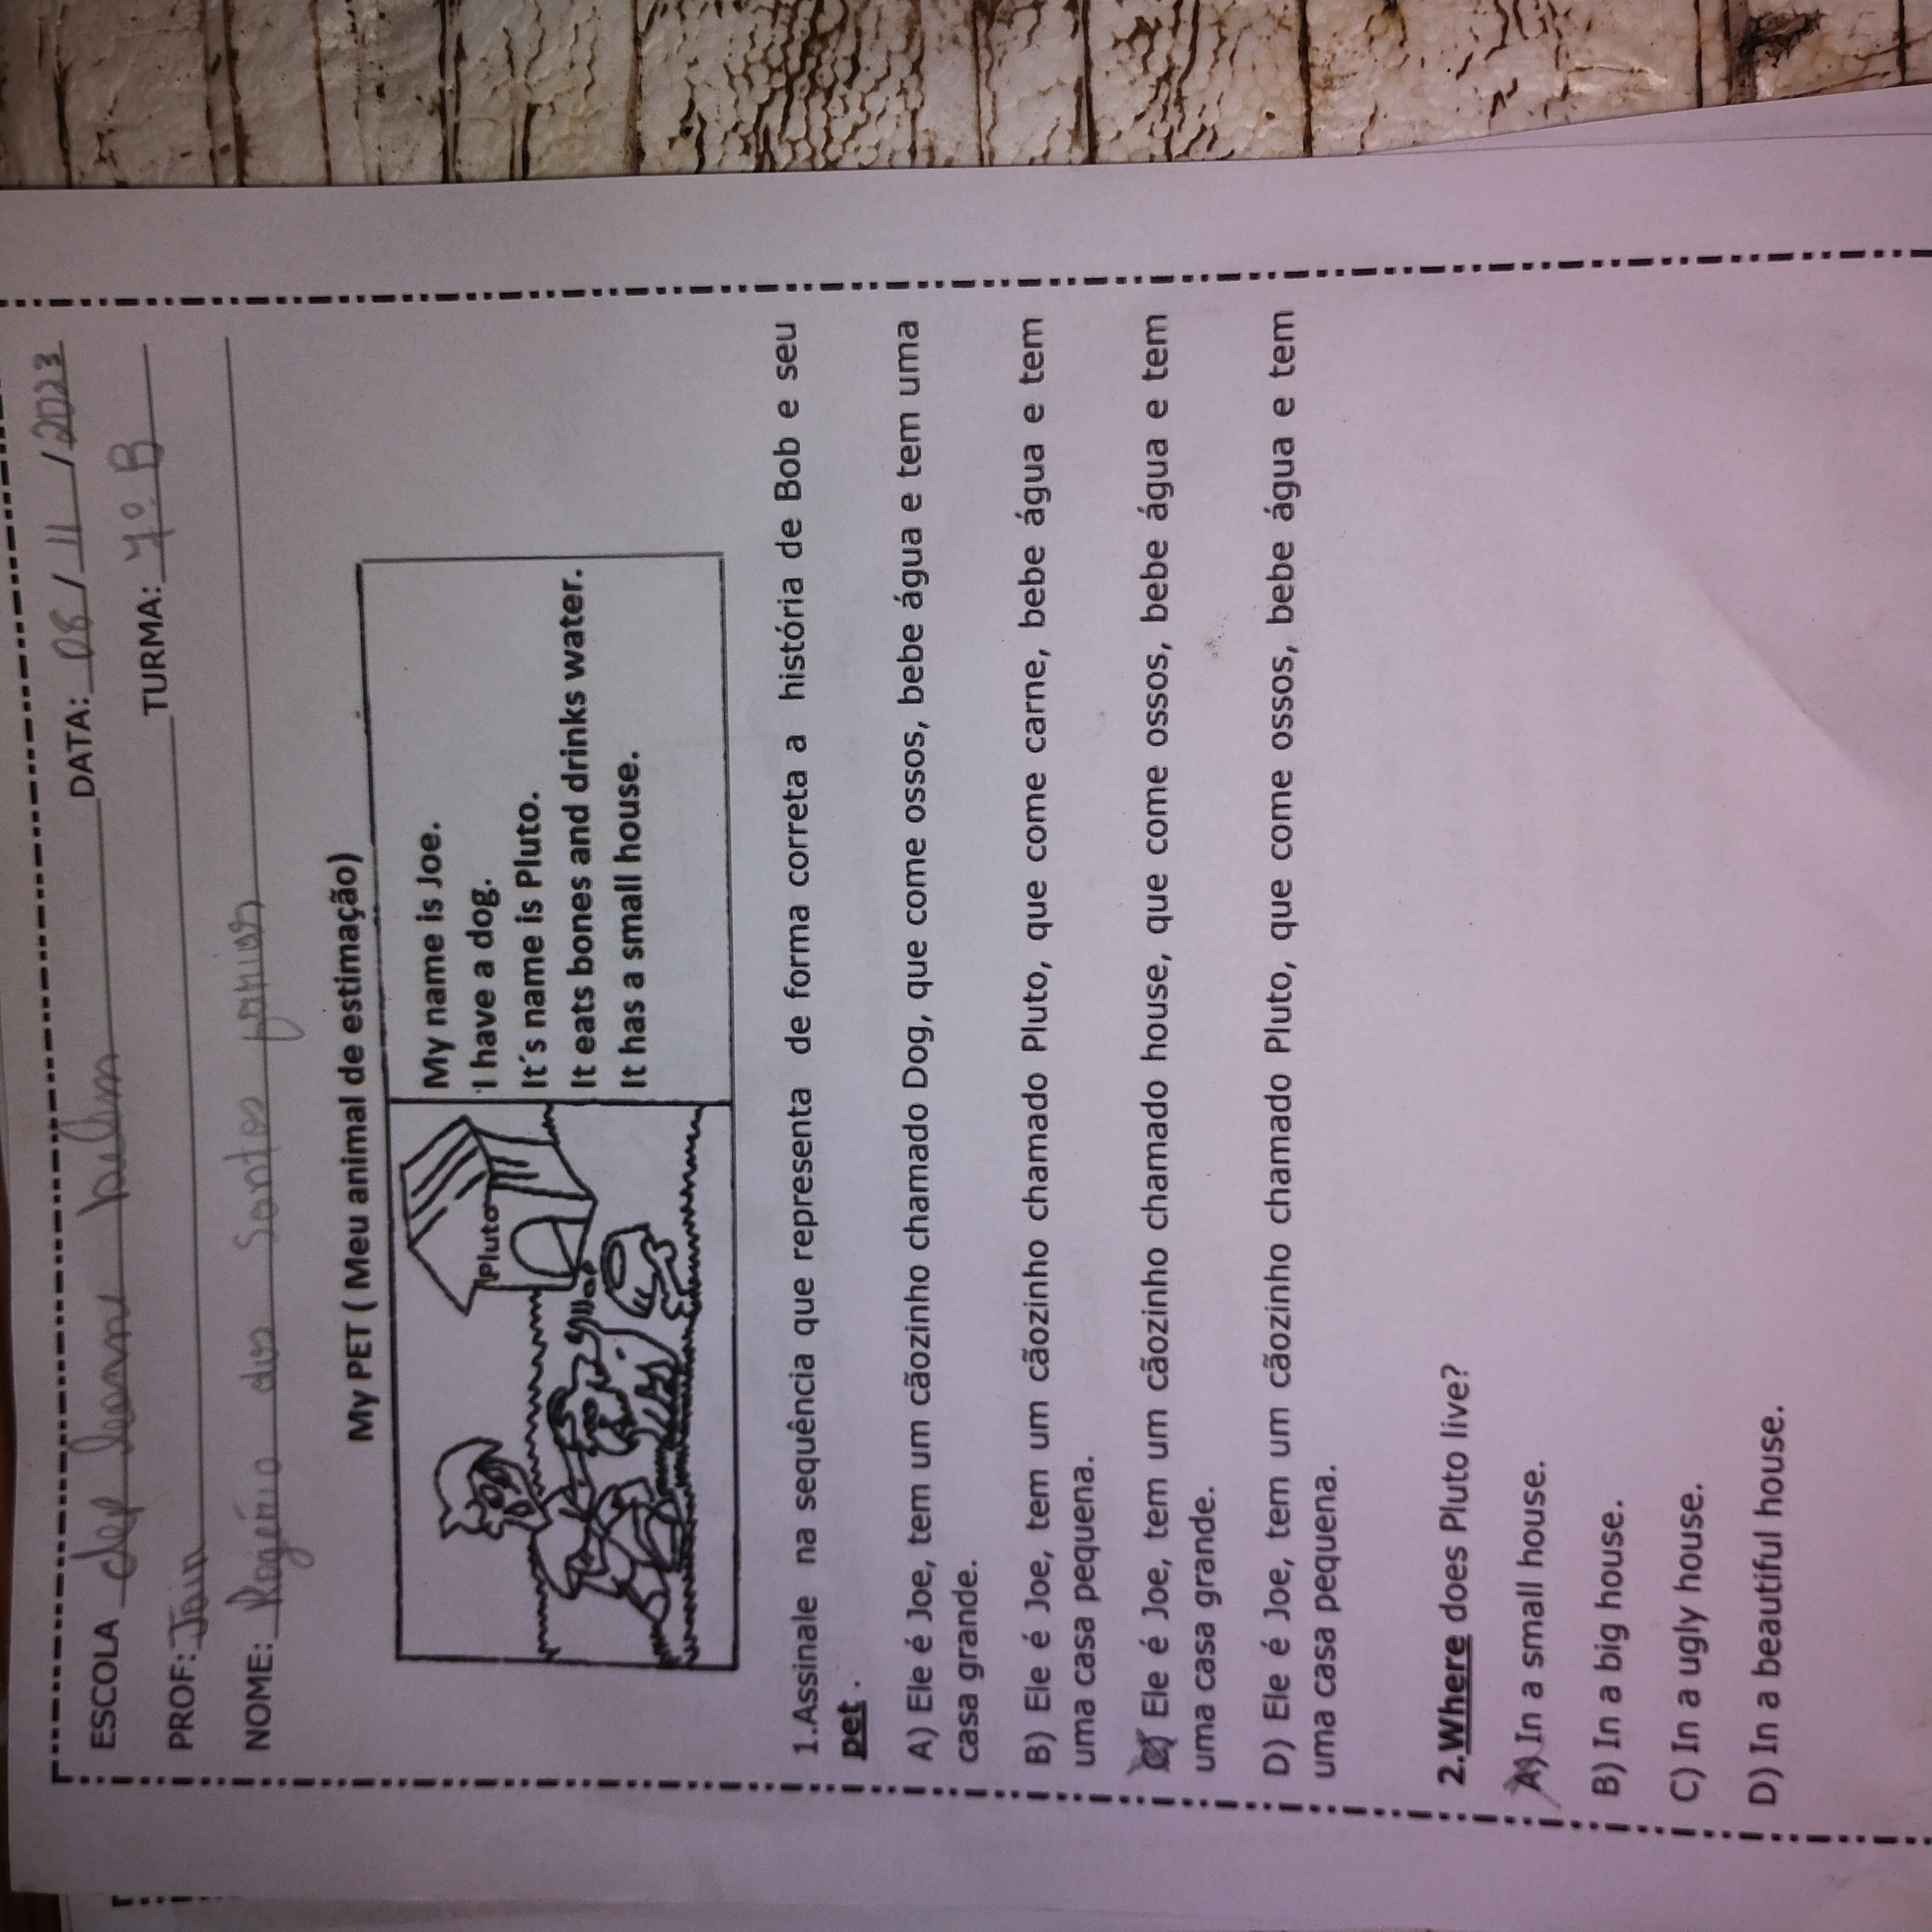 ESCOLA dep
DATA: 08 / 11 / 2023
PROF: Jain
TURMA: 7º B
NOME: Rogério dos Santos
My PET ( Meu animal de estimação)
Pluto
My name is Joe.
I have a dog.
It´s name is Pluto.
It eats bones and drinks water.
It has a small house.
1.Assinale na sequência que representa de forma correta a história de Bob e seu
pet .
A) Ele é Joe, tem um cãozinho chamado Dog, que come ossos, bebe água e tem uma
casa grande.
B) Ele é Joe, tem um cãozinho chamado Pluto, que come carne, bebe água e tem
uma casa pequena.
C) Ele é Joe, tem um cãozinho chamado house, que come ossos, bebe água e tem
uma casa grande.
D) Ele é Joe, tem um cãozinho chamado Pluto, que come ossos, bebe água e tem
uma casa pequena.
2.Where does Pluto live?
A) In a small house.
B) In a big house.
C) In a ugly house.
D) In a beautiful house.